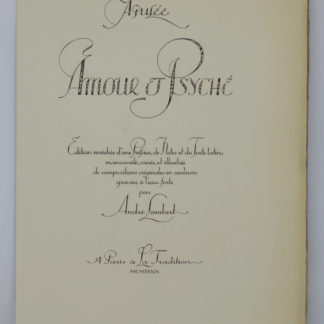 Apulée
Amour et Psyché
Édition enrichie d'une Préface, de Notes et du Texte latin,
manuscrite, ornée, et illustrée
de compositions originales en couleurs
gravées à l'eau-forte
par
André Lambert
A Paris à La Tradition